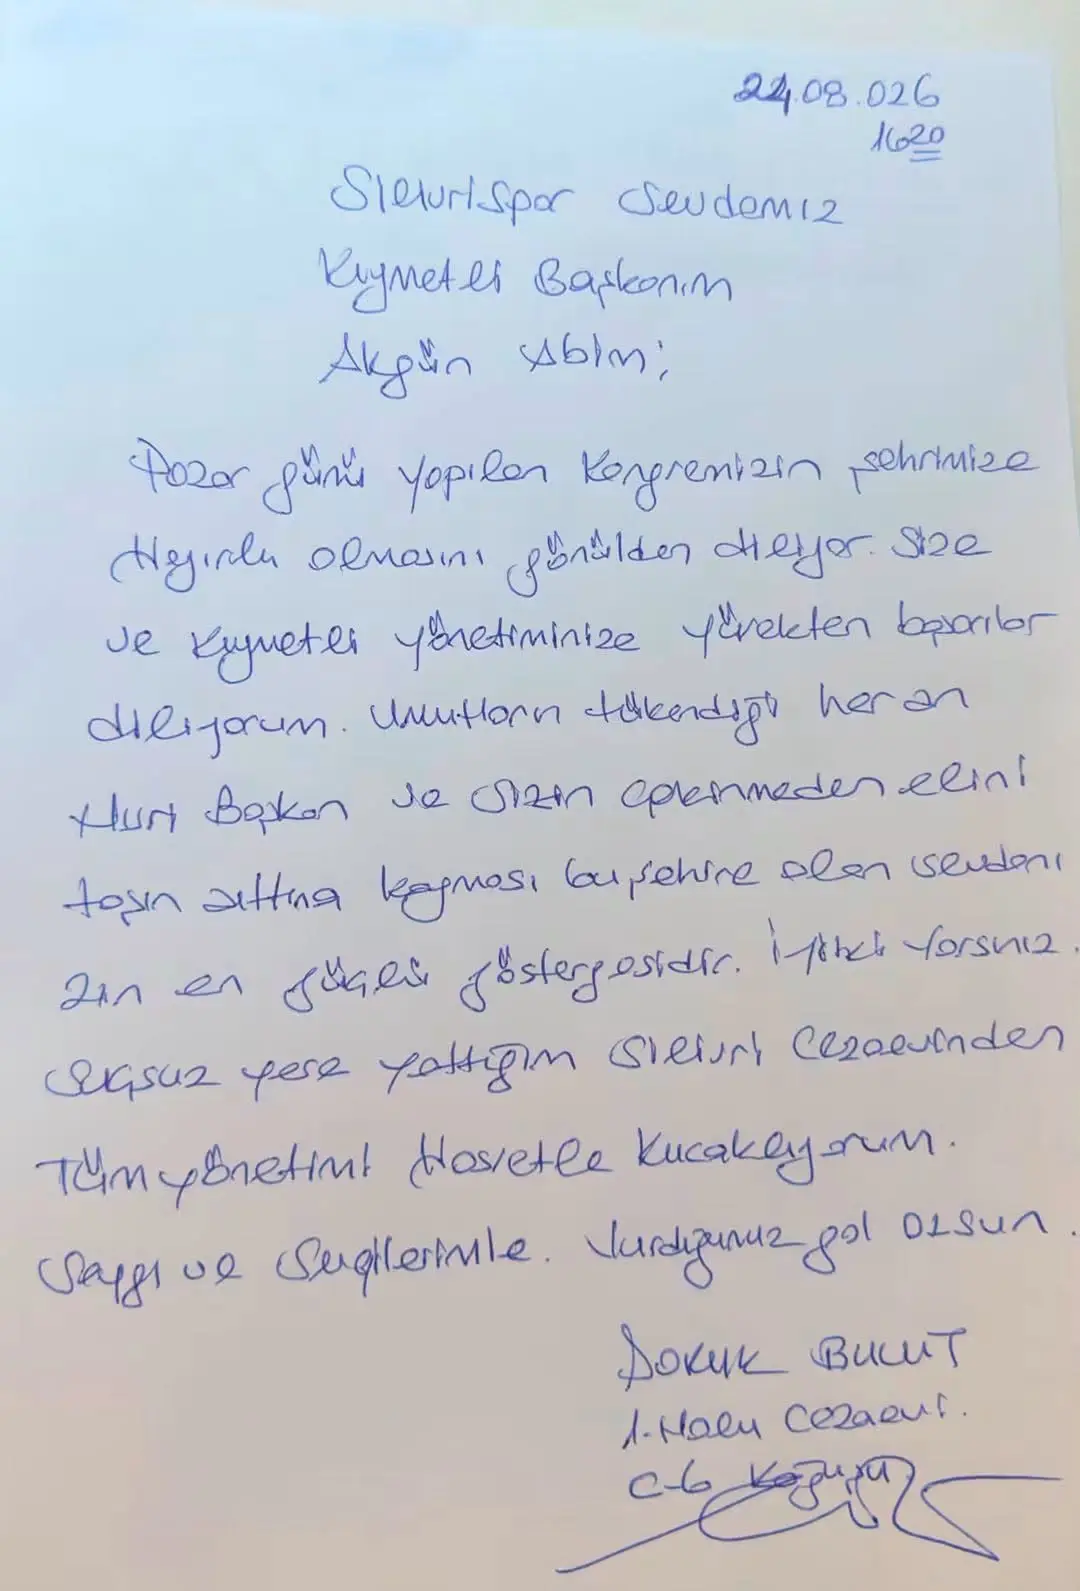 24.08.026
1620
Silivrispor Sevdamız
Kıymetli Başkanım
Akgün Abim;
Pazar günü yapılan Kongremizin şehrimize
Hayırlı olmasını gönülden diliyor. Size
ve Kıymetli yönetiminize yürekten başarılar
diliyorum. Umutların tükendiği her an
Nuri Başkan ve Sizin çekinmeden elini
taşın altına koyması bu şehire olan sevdanı
zın en güçlü göstergesidir. İyiki Varsınız.
Suçsuz yere yattığım Silivri Cezaevinden
Tüm yönetimi Hasretle Kucaklıyorum.
Saygı ve Sevgilerimle. Vurduğunuz gol olsun.
Doruk BULUT
1. Nolu Cezaevi.
C-6 Koğuşu